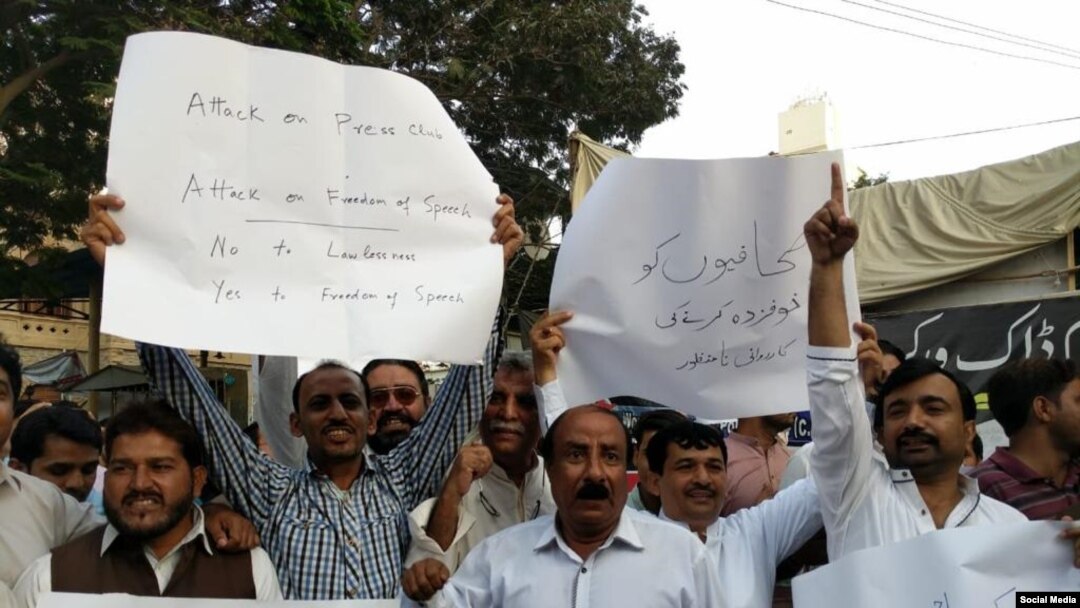 Attack on Press Club
Attack on Freedom of Speech
No to Lawlessness
Yes to Freedom of Speech
صحافیوں کو
خوفزدہ کرنے کی
کارروائی نامنظور
ڈاک ورکر
Social Media